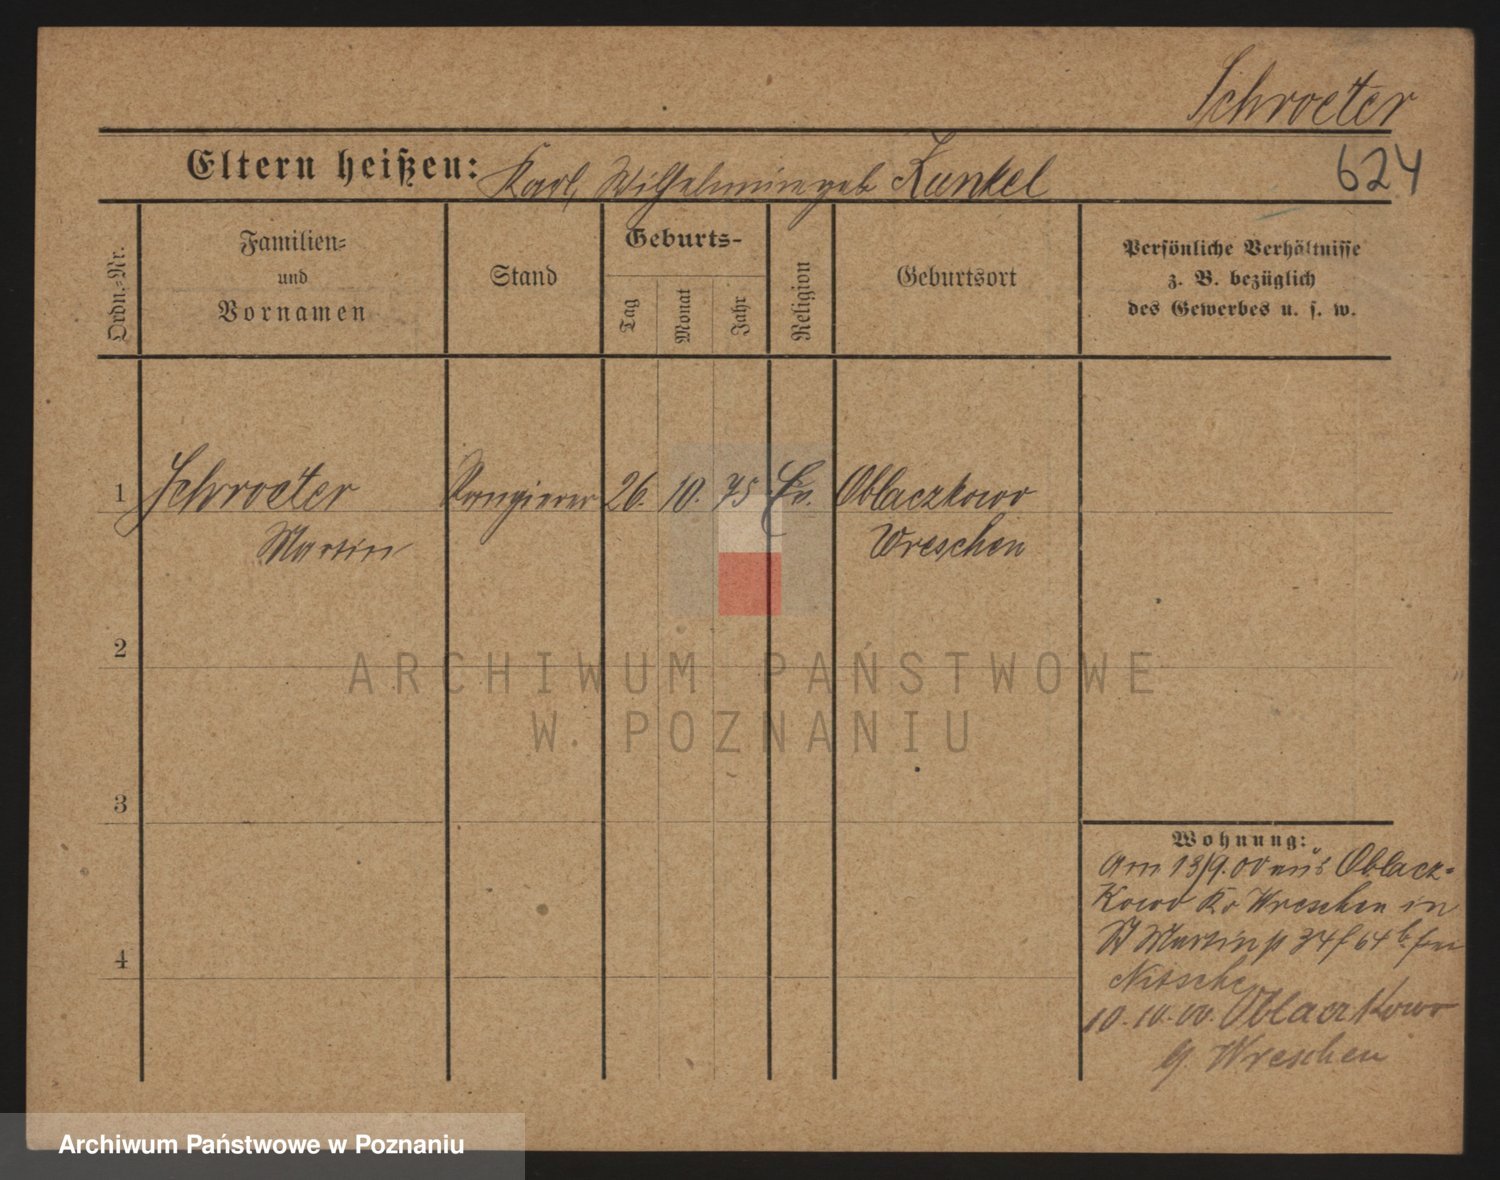 Schroeter
Eltern heißen: Karl, Wilhelmine geb Kunkel
624
Ordn.-Nr.
Familien-
und
Vornamen
Stand
Geburts-
Tag
Monat
Jahr
Religion
Geburtsort
Persönliche Verhältnisse
z. B. bezüglich
des Gewerbes u. s. w.
1 Schroeter Rangierer 26. 10. 75 Ev. Oblaczkowo
Martin Wreschen
2
ARCHIWUM PAŃSTWOWE
W POZNANIU
3
Wohnung:
Am 13/9.00 aus Oblacz-
kowo Kr Wreschen in
St Martin 34 64 b.
4
Nitsche
10.10.00. Oblaczkowo
Wreschen
Archiwum Państwowe w Poznaniu